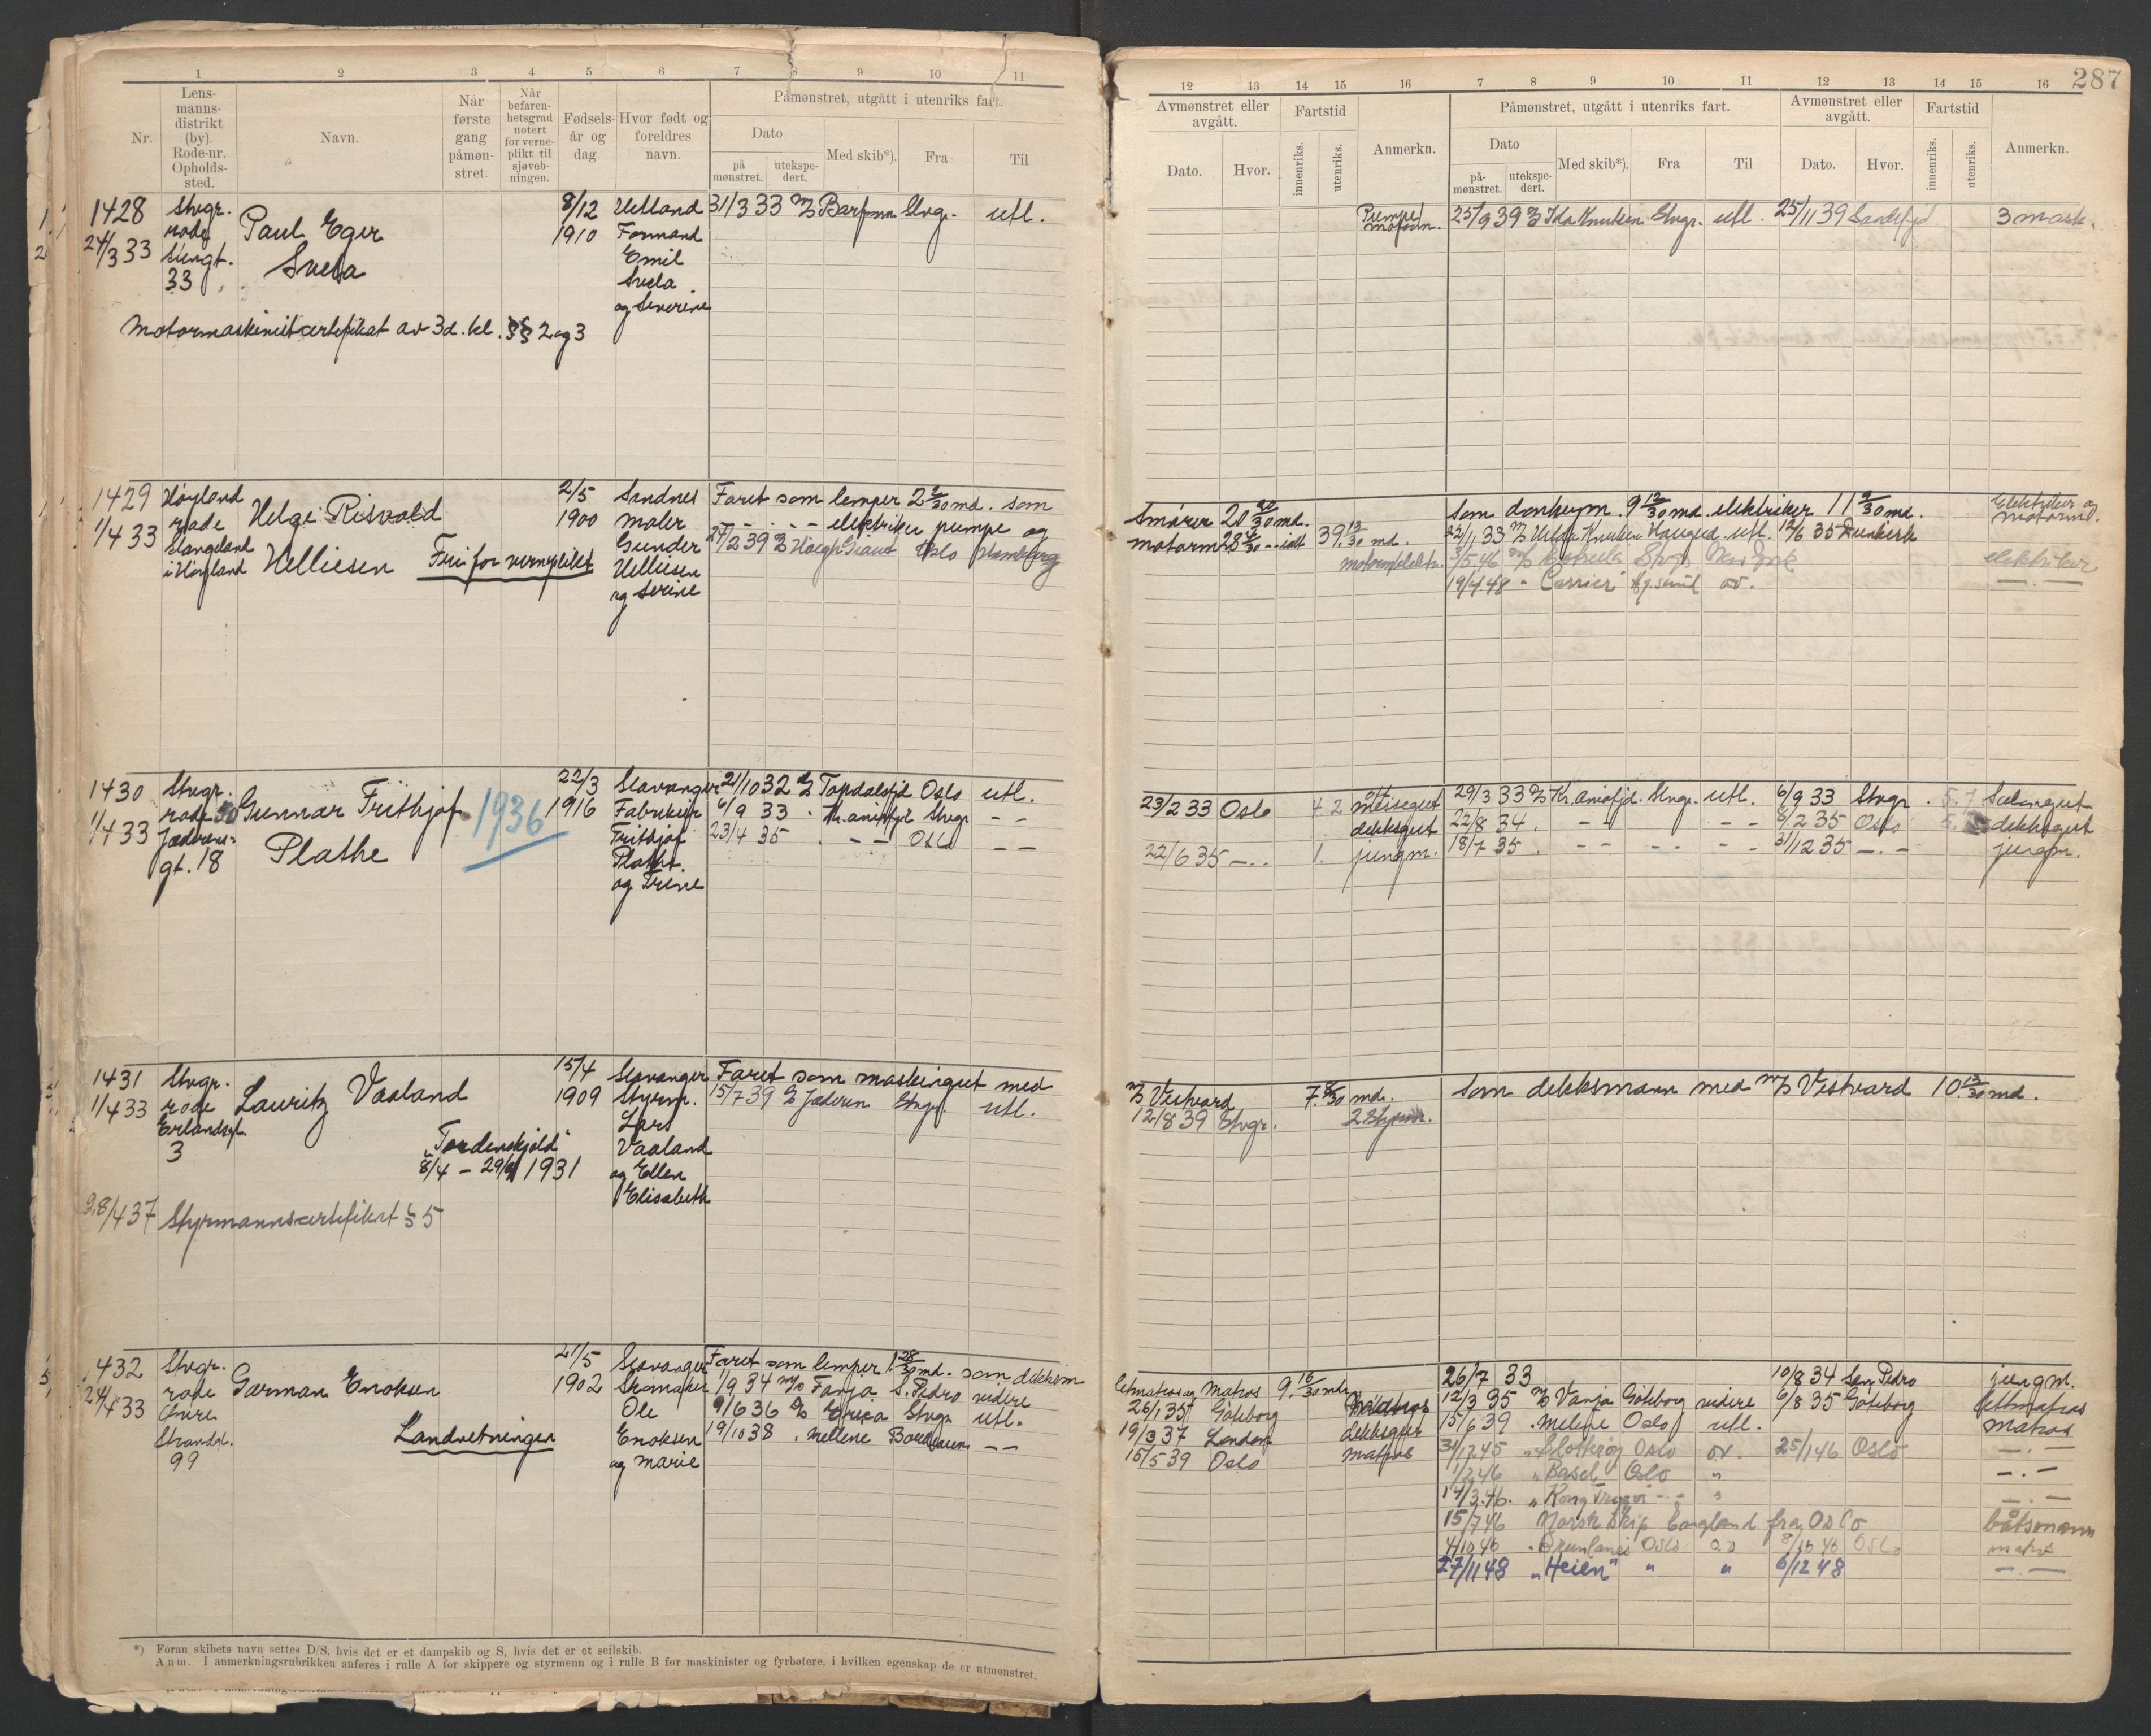 1 2 3 4 5 6 7 8 9 10 11
Nr.
Lens-
manns-
distrikt
(by).
Rode-nr.
Opholds-
sted.
Navn.
Når
første
gang
påmøn-
stret.
Når
befaren-
hetsgrad
notert
for verne-
plikt til
sjøveb-
ningen.
Fødsels-
år og
dag
Hvor født og
foreldres
navn.
Påmønstret, utgått i utenriks fart.
Dato
på
mønstret.
utekspe-
dert.
Med skib*).
Fra
Til
1428 Stvgr. Paul Eger 8/12 Hetland 31/3 33 Stvgr. utl.
24/3 33 rode Svela 1910 Formand
33 Emil
Svela
og Severine
Motormaskinistcertefikat av 3d. kl. §§ 2 og 3
1429 Høyland Helge Risvold 2/5 Sandnes Faret som lemper 2 md. som
1/4 33 rode Helliesen 1900 maler elektriker pumpe og
Slangeland Fri for verneplikt Gunder 27/2 39 Høegh Giant Oslo Hamburg
i Høyland Helliesen
og Serine
1430 Stvgr. Gunnar Frithjof 1936 22/3 Stavanger 21/10 32 Topdalsfjd Oslo utl.
1/4 33 rode 50 Plathe 1916 Fabrikeier 6/9 33 Kr.aniafjd Stvgr — —
Jæderens- Frithjof 23/4 35 — — Oslo — —
gt. 18 Plathe
og Trine
1431 Stvgr. Lauritz Vaaland 15/4 Stavanger Faret som maskingut med
1/4 33 rode 1909 Styrm. 15/7 39 Jæderen Stvgr. utl.
Erlandsgt. Lars
3 "Tordenskjold" Vaaland
8/4 — 29/9 1931 og Ellen
Elisabeth
28/4 37 Styrmannscertefikat § 5
1432 Stvgr. Garman Enoksen 21/5 Stavanger Faret som lemper 1 28/30 md. som dekksm
24/4 33 rode 1902 Skomaker 1/9 34 Fanja S. Pedro videre
Øvre Ole 9/6 36 Erica Stvgr utl.
Strandgt. Landsetningen Enoksen 19/10 38 Mellene Bordeaux — —
99 og Marie
*) Foran skibets navn settes D/S, hvis det er et dampskib og S, hvis det er et seilskib.
Anm. I anmerkningsrubrikken anføres i rulle A for skippere og styrmenn og i rulle B for maskinister og fyrbøtere, i hvilken egenskap de er utmønstret.
287
12 13 14 15 16 7 8 9 10 11 12 13 14 15 16
Avmønstret eller
avgått.
Dato. Hvor.
Fartstid
innenriks.
utenriks.
Anmerkn.
Påmønstret, utgått i utenriks fart.
Dato
på-
mønstret.
utekspe-
dert.
Med skib*).
Fra
Til
Avmønstret eller
avgått.
Dato. Hvor.
Fartstid
innenriks.
utenriks.
Anmerkn.
Pumpe 25/9 39 Ida Knutsen Stvgr. utl. 25/11 39 Sandefjd 3 mask.
motorm.
Smører 20 20/30 md. som donkeym. 9 12/30 md. elektriker 11 md. Elektriker og
motorm 28 39 12/30 md. 22/11 33 Hilda Knutsen Haugsd. utl. 12/6 35 Dunkerk motorm.
3/5.46 Stvgr New York elektriker
19/4 48 " Carrier Hg.sund ov. — —
23/2 33 Oslo 4 2 messegut 29/3 33 Kr.aniafjd. Stvgr. utl. 6/9 33 Stvgr. 5. 7 Salongut
dekksgut 22/8 34 — — — — 8/2 35 Oslo dekksgut
22/6 35 — 1. jungm. 18/7 35 — — — — 31/12 35 — jungm.
Vestvard 7 md. som dekksmann med Vestvard 10 md.
12/8 39 Stvgr. 2 Styrm.
26/7 33 10/8 34 San Pedro jungm.
letmatros og Matros 9 16/30 mdr 12/3 35 Vanja Göteborg videre 6/8 35 Göteborg lettmatros
26/1 35 Göteborg Matros 15/6 39 Melene Oslo utl. Matros
19/3 37 London dekksgut 31/12.45 Oslo ov. 25/1 46 Oslo — —
15/5 39 Oslo matros 1/2 46 " Basel Oslo " — —
14/3.46. " Kong — — " — —
15/7 46 Norsk skip England fra Oslo båtsmann
4/10 46 " Brunlanes Oslo ov 8/10 46 Oslo matros
27/11 48 "Heien" " " 6/12 48 — —